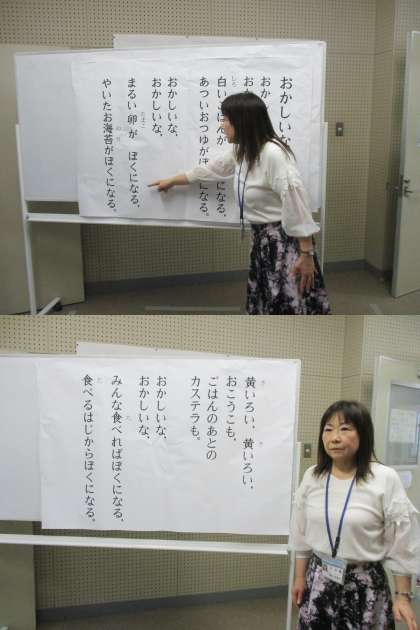 おかしいな
おか
おか
白いごはんが になる、
あついおつゆがぼ になる。
おかしいな、
おかしいな、
まるい卵が ぼくになる、
やいたお海苔がぼくになる。
黄いろい、黄いろい、
おこうこも、
ごはんのあとの
カステラも。
おかしいな、
おかしいな、
みんな食べればぼくになる、
食べるはじからぼくになる。